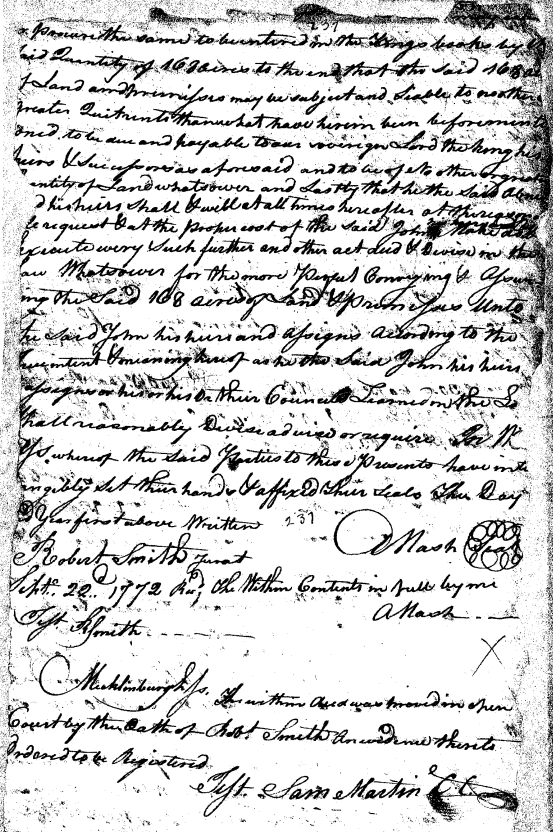 237
procure the same to be entered in the Kings books by the
said Quantity of 168 acres to the end that the said 168 ac
of Land and premises may be subject and Liable to no other
greater Quitrents than what have herein been beforementi
oned to be due and payable to our sovereign Lord the King his
heirs & Successors as aforesaid and to be of to other or great
entity of Land whatsoever and Lastly that he the said
d his heirs shall & will at all times hereafter at the reason
le request & at the proper cost of the said John
execute every Such further and other act deed & Devise in the
aw Whatsoever for the more Perfect Conveying & Assur
ing the Said 168 acres of Land & Premises Unto
he said John his heirs and assigns According to the
true intent & meaning hereof as he the Said John his heirs
assigns or his or their Councel Learned in the La
Shall reasonably Devise advise or require In Wi
tness whereof the said Parties to these Presents have inte
rchangibly Set their hands & affixed their Seals The Day
& Year first above Written 237
AMash Seal
Robert Smith Jurat
Sept. 22d. 1772 Recd. The Within Contents in full by me
AMash
Test RSmith
X
Mecklinburgh ss. The within deed was proved in open
Court by the Oath of Robt Smith an evidence thereto
Ordered to be Registered
Test. Sam Martin CC